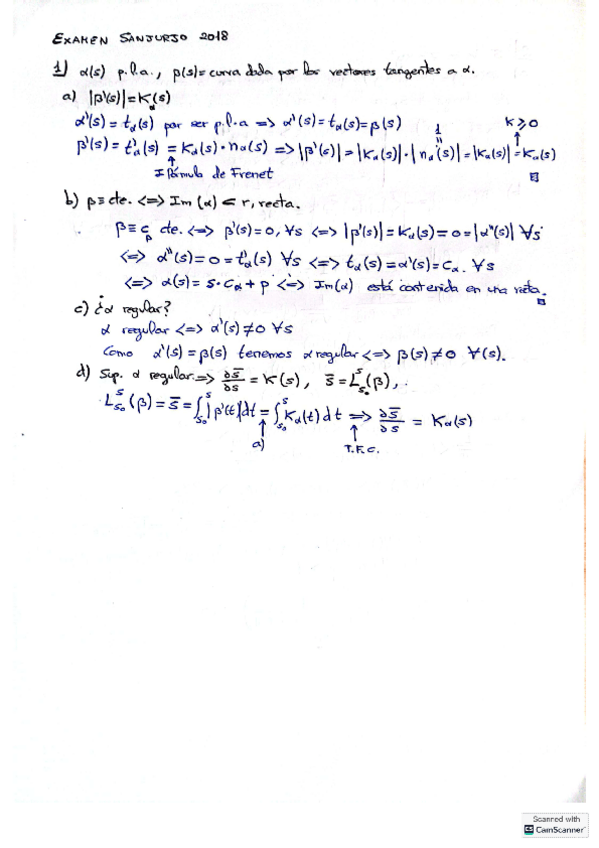 EXAMEN SANJURJO 2018
1) α(s) p.l.a., β(s)=curva dada por los vectores tangentes a α.
a) |β'(s)|=K_α(s)
α'(s)=t_α(s) por ser p.l.a => α'(s)=t_α(s)=β(s)
1 K≥0
β'(s)=t'_α(s)=K_α(s)·n_α(s) => |β'(s)|=|K_α(s)|·|n_α(s)|=|K_α(s)|=K_α(s)
I fórmula de Frenet
b) β≡cte. <=> Im(α)⊂r, recta.
β≡c_β cte. <=> β'(s)=0, ∀s <=> |β'(s)|=K_α(s)=0=|α''(s)| ∀s
<=> α''(s)=0=t'_α(s) ∀s <=> t_α(s)=α'(s)=C_α. ∀s
<=> α(s)=s·C_α+p <=> Im(α) está contenida en una recta.
c) ¿α regular?
α regular <=> α'(s)≠0 ∀s
Como α'(s)=β(s) tenemos α regular <=> β(s)≠0 ∀(s).
d) Sup. α regular. => ∂s̄/∂s = K(s), s̄=L_{s₀}^s(β),.
L_{s₀}^s(β)=s̄=∫_{s₀}^s|β'(t)|dt=∫_{s₀}^s K_α(t)dt => ∂s̄/∂s = K_α(s)
a) T.F.C.
Scanned with
CamScanner